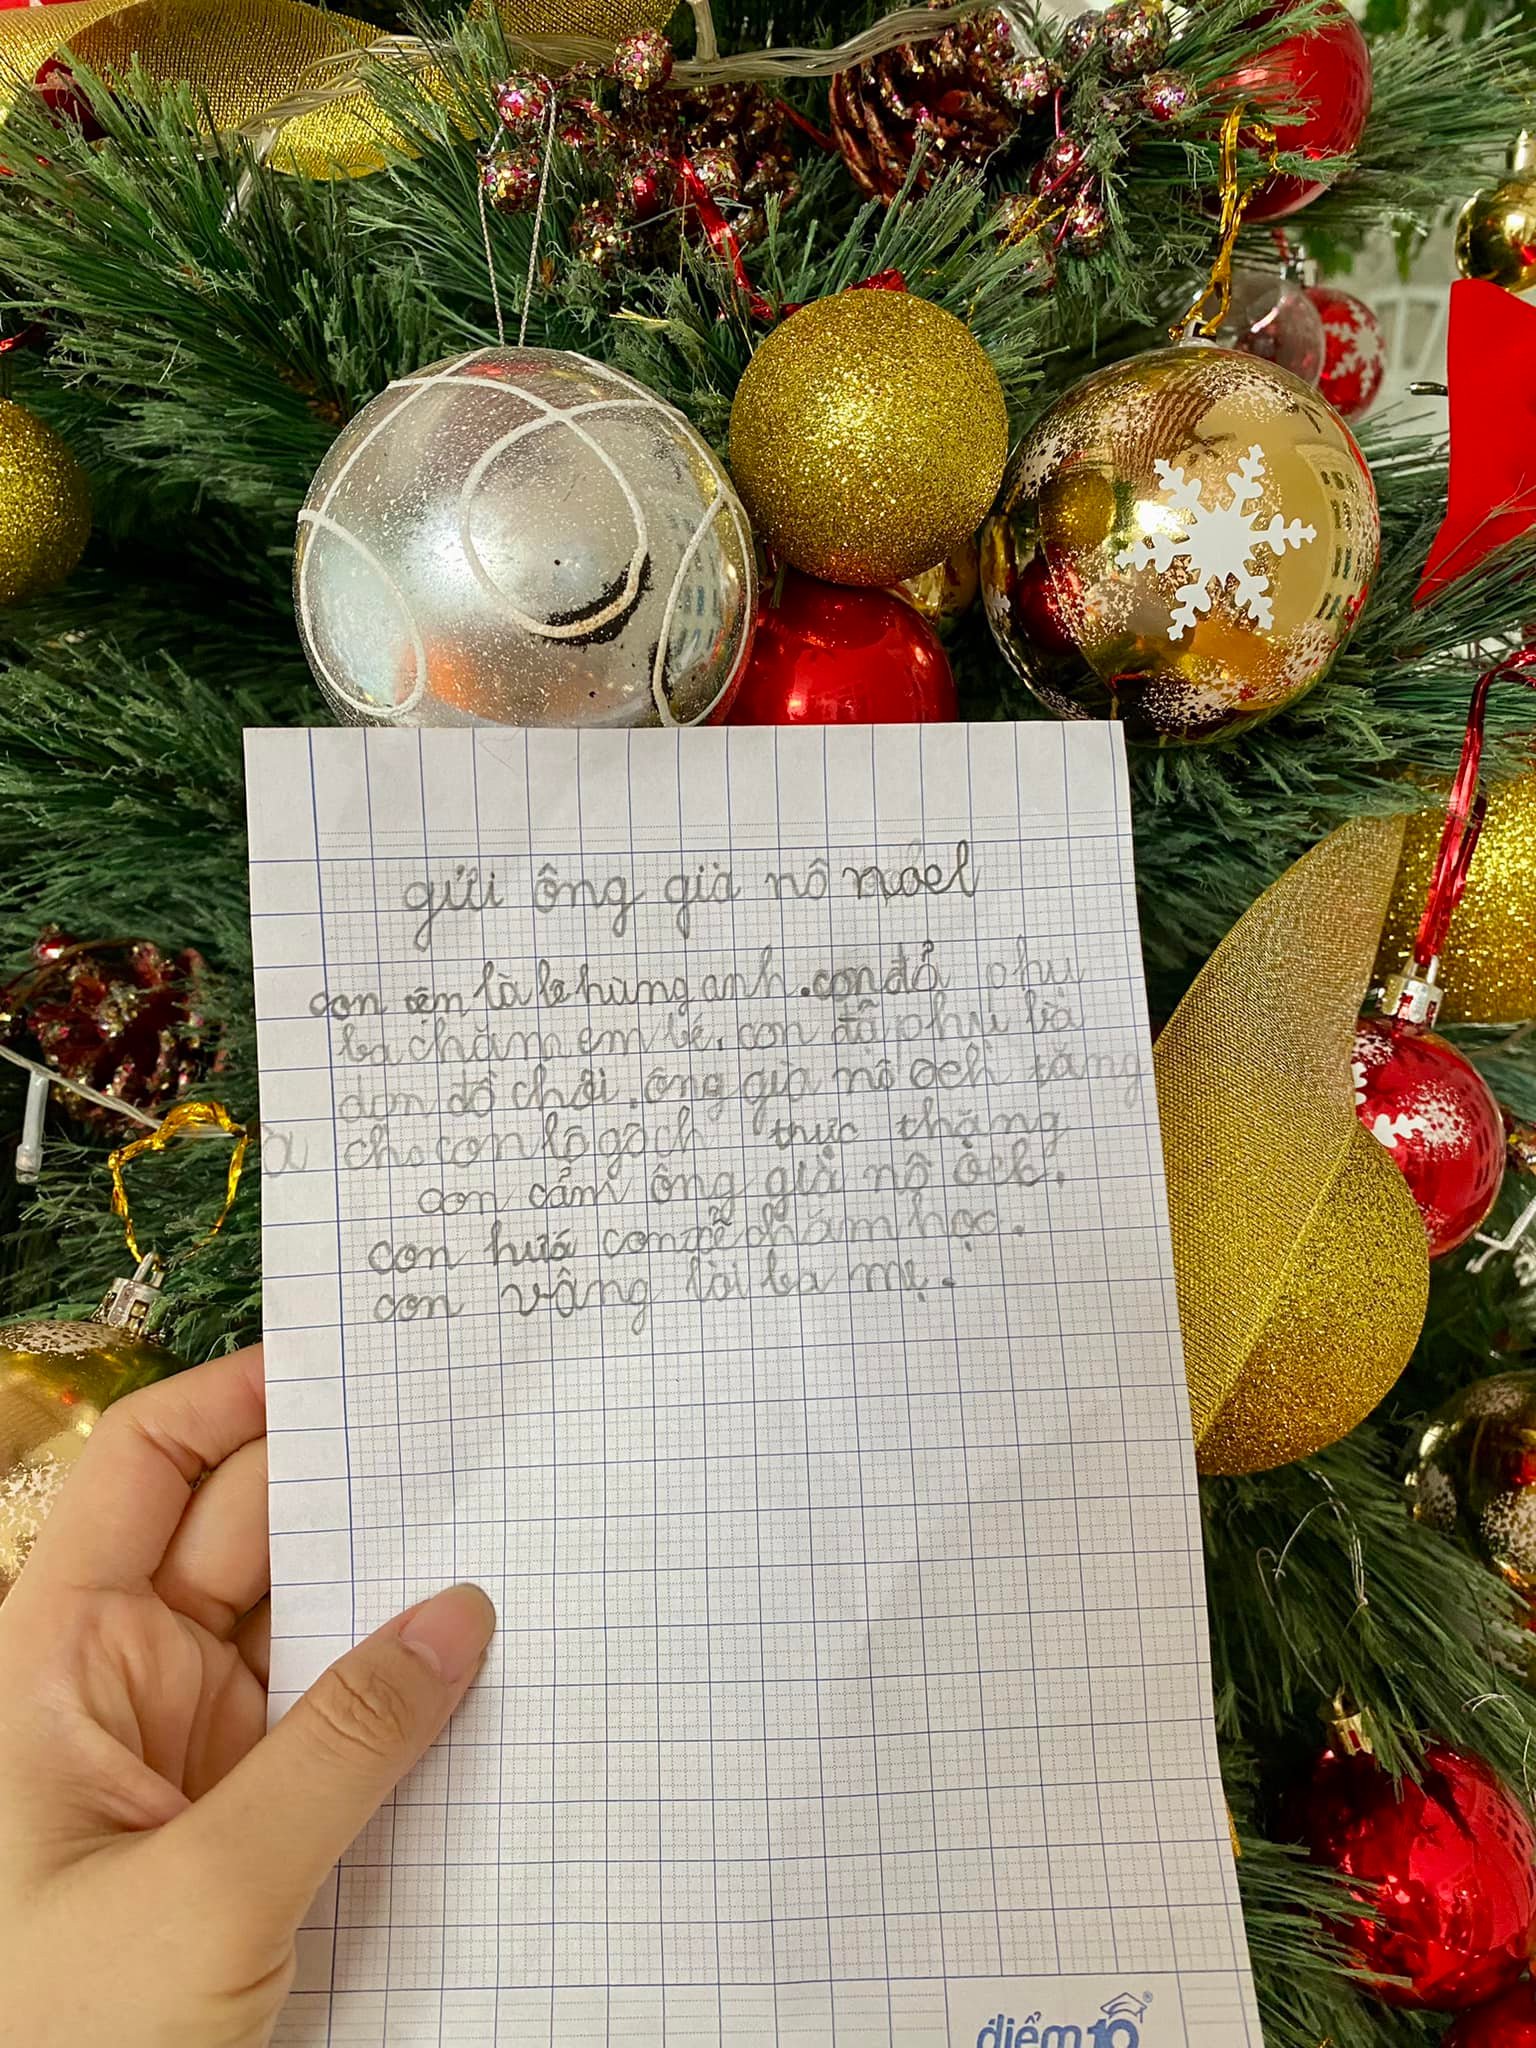 gửi ông già nô noel
con tên là lê hùng anh. con đã phụ
ba chăm em bé. con đã phụ bà
dọn đồ chơi. ông già nô oel tặng
à cho con lô gạch thực thăng
con cảm ông già nô oel.
con hướ con sẽ chăm học.
con vâng lời ba mẹ.
điểm 10